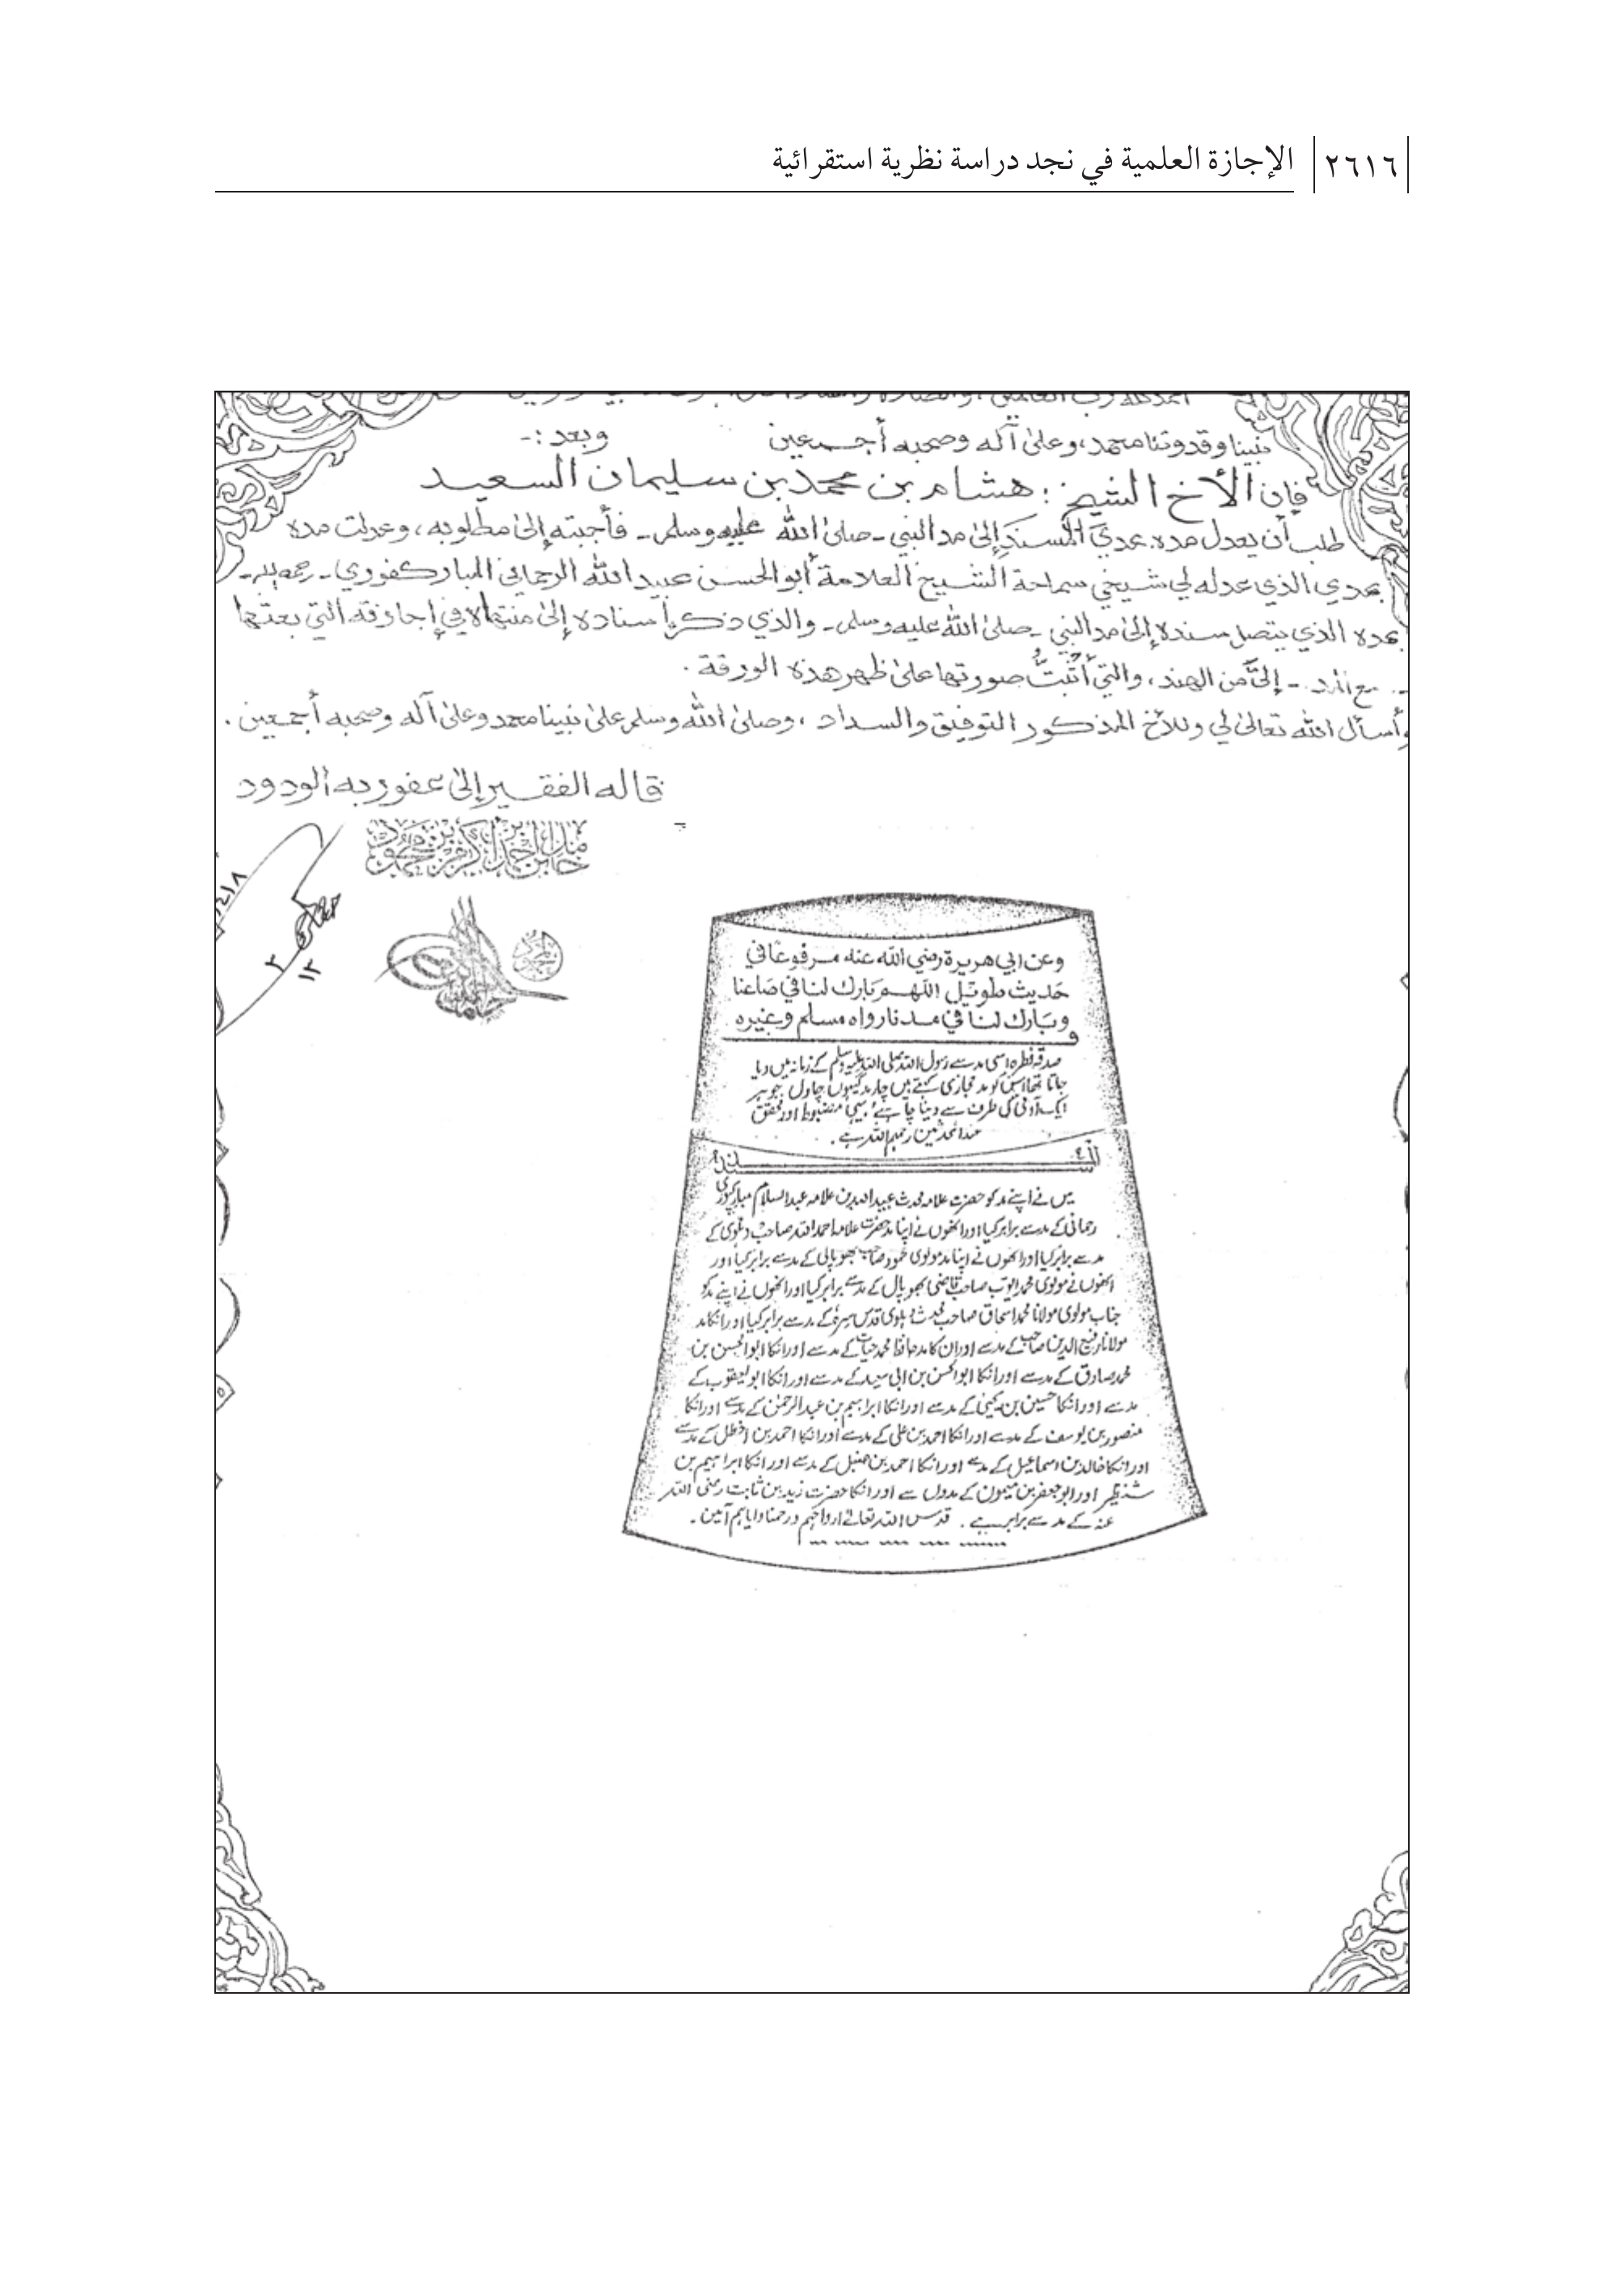 ٢٦١٦ الإجازة العلمية في نجد دراسة نظرية استقرائية
نبينا وقدوتنا محمد، وعلى آله وصحبه أجمعين وبعد :-
فإن الأخ الشيخ : هشام بن محمد بن سليمان السعيد
طلب أن يعدل مده بمدي المسند إلى مد النبي - صلى الله عليه وسلم - فأجبته إلى مطلوبه، وعدلت مده
بمدي الذي عدله لي شيخي سماحة الشيخ العلامة أبو الحسن عبيد الله الرحماني المباركفوري - رحمه الله -
بمده الذي يتصل سنده إلى مد النبي - صلى الله عليه وسلم - والذي ذكر إسناده إلى منتهاه في إجازته التي بعثها
إليَّ من الهند، والتي أثبتُّ صورتها على ظهر هذه الورقة .
وأسأل الله تعالى لي وللأخ المذكور التوفيق والسداد، وصلى الله وسلم على نبينا محمد وعلى آله وصحبه أجمعين .
قاله الفقير إلى عفو ربه الودود
وعن ابي هريرة رضي الله عنه مرفوعا في
حديث طويل اللهم بارك لنا في صاعنا
وبارك لنا في مدنا رواه مسلم وغيره
صدقہ فطرہ اسی مد سے رسول اللہ صلی اللہ علیہ وسلم کے زمانہ میں دیا
جاتا تھا اس کو مد حجازی کہتے ہیں چار مد گیہوں چاول جو ہر
ایک آدمی کی طرف سے دینا چاہئے یہی مضبوط اور محقق
عند المحدثین رحمہم اللہ ہے .
السند
میں نے اپنے مد کو حضرت علامہ محدث عبید اللہ بن علامہ عبدالسلام مبارکپوری
رحمانی کے مد سے برابر کیا اور انھوں نے اپنا مد حضرت علامہ احمد اللہ صاحب دہلوی کے
مد سے برابر کیا اور انھوں نے اپنا مد مولوی محمود صاحب بھوپالی کے مد سے برابر کیا اور
انھوں نے مولوی محمد ایوب صاحب قاضی بھوپال کے مد سے برابر کیا اور انھوں نے اپنے مد کو
جناب مولوی مولانا محمد اسحاق صاحب محدث دہلوی قدس سرہ کے مد سے برابر کیا اور انکا مد
مولانا رفیع الدین صاحب کے مد سے اور ان کا مد حافظ محمد حیات کے مد سے اور انکا ابو الحسن بن
محمد صادق کے مد سے اور انکا ابو الحسن بن ابی سعید کے مد سے اور انکا ابو یعقوب کے
مد سے اور انکا حسین بن یحییٰ کے مد سے اور انکا ابراہیم بن عبد الرحمٰن کے مد سے اور انکا
منصور بن یوسف کے مد سے اور انکا احمد بن علی کے مد سے اور انکا احمد بن اخطل کے مد سے
اور انکا خالد بن اسماعیل کے مد سے اور انکا احمد بن حنبل کے مد سے اور انکا ابراہیم بن
شنظیر اور ابو جعفر بن میمون کے مدوں سے اور انکا حضرت زید بن ثابت رضی اللہ
عنہ کے مد سے برابر ہے . قدس اللہ تعالے ارواحہم ورحمنا وایاہم آمین .